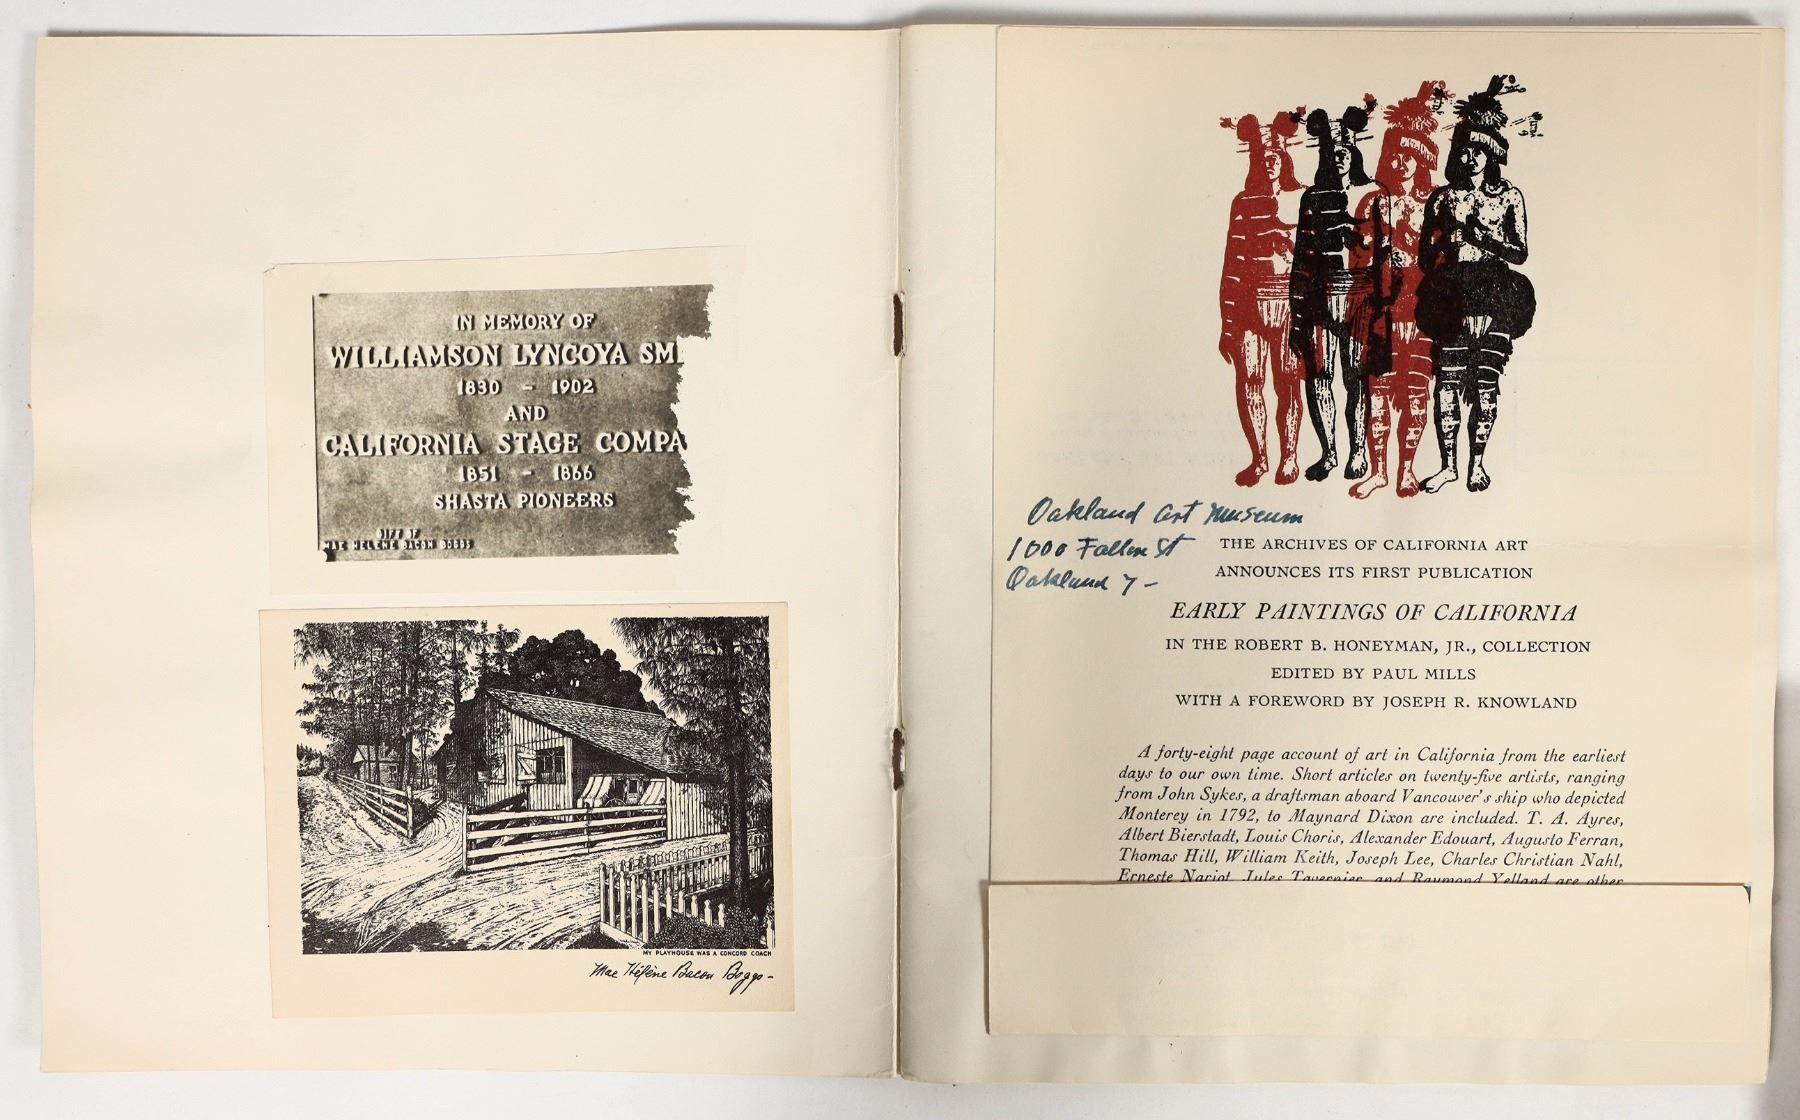 IN MEMORY OF
WILLIAMSON LYNCOYA SMI
1830 - 1902
AND
CALIFORNIA STAGE COMPA
1851 - 1866
SHASTA PIONEERS
GIFT OF
MAE HELENE BACON BOGGS
MY PLAYHOUSE WAS A CONCORD COACH
Mae Hélène Bacon Boggs-
Oakland Art Museum
1000 Fallon St
Oakland 7-
THE ARCHIVES OF CALIFORNIA ART
ANNOUNCES ITS FIRST PUBLICATION
EARLY PAINTINGS OF CALIFORNIA
IN THE ROBERT B. HONEYMAN, JR., COLLECTION
EDITED BY PAUL MILLS
WITH A FOREWORD BY JOSEPH R. KNOWLAND
A forty-eight page account of art in California from the earliest
days to our own time. Short articles on twenty-five artists, ranging
from John Sykes, a draftsman aboard Vancouver's ship who depicted
Monterey in 1792, to Maynard Dixon are included. T. A. Ayres,
Albert Bierstadt, Louis Choris, Alexander Edouart, Augusto Ferran,
Thomas Hill, William Keith, Joseph Lee, Charles Christian Nahl,
Erneste Narjot, Jules Tavernier, and Raymond Yelland are other